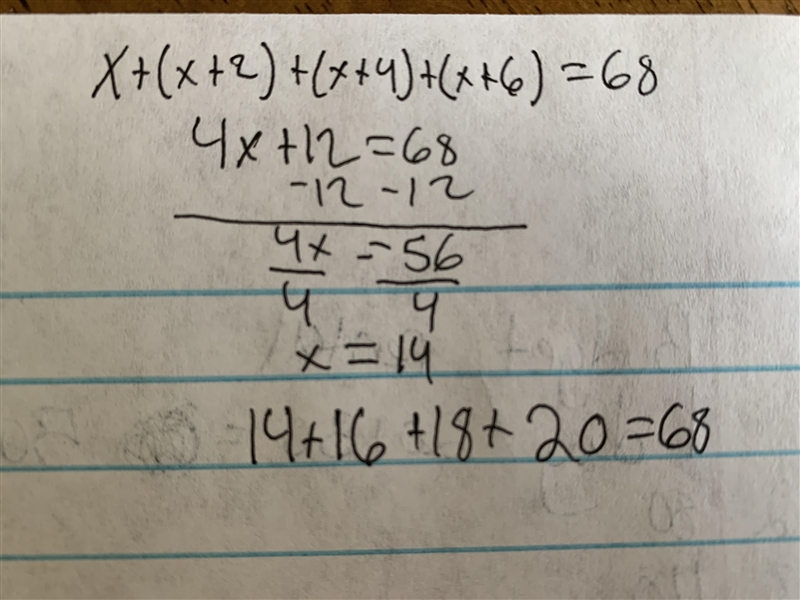 x+(x+2)+(x+4)+(x+6)=68
4x+12=68
-12 -12
4x = 56
4 4
x=14
14+16+18+20=68